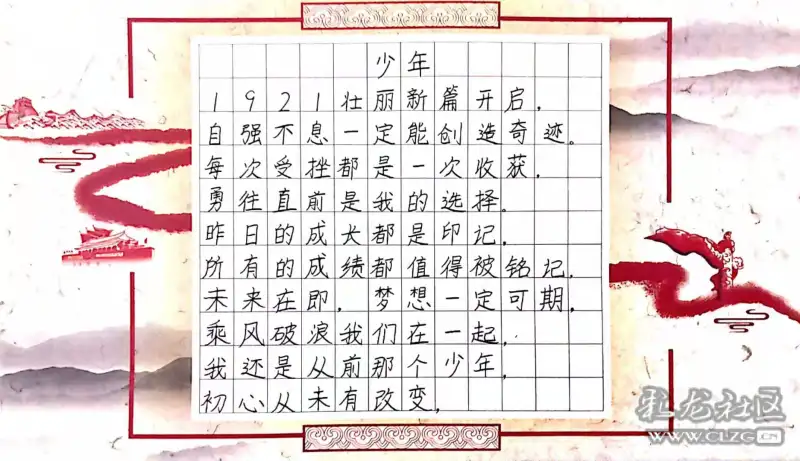 少年
1921壮丽新篇开启，
自强不息一定能创造奇迹。
每次受挫都是一次收获，
勇往直前是我的选择。
昨日的成长都是印记，
所有的成绩都值得被铭记，
未来在即，梦想一定可期，
乘风破浪我们在一起，
我还是从前那个少年，
初心从未有改变，
礼龙社区
WWW.CLZG.CN